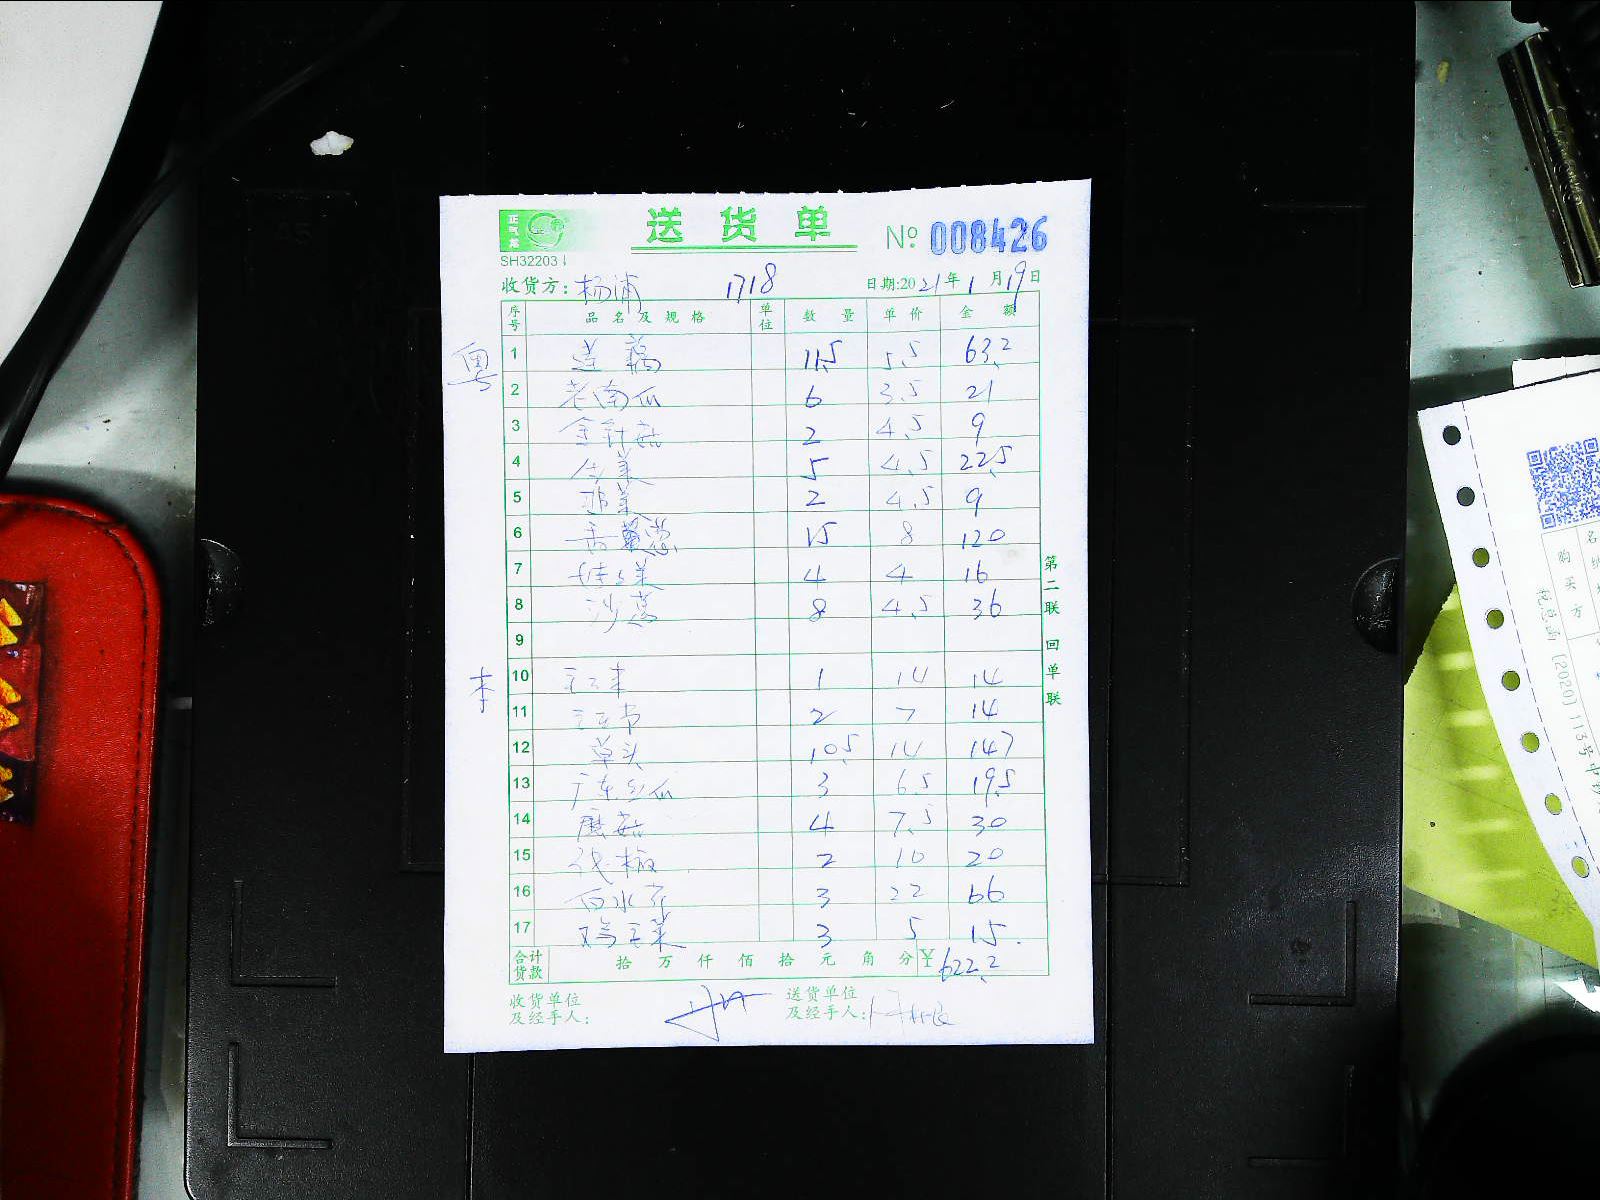 正气花
送货单 № 008426
SH32203
收货方: 杨浦 1718 日期:2021年1月19日
序号 品名及规格 单位 数量 单价 金额
粤
1 莲藕 11.5 5.5 63.2
2 老南瓜 6 3.5 21
3 金针菇 2 4.5 9
4 5 4.5 22.5
5 2 4.5 9
6 15 8 120
7 4 4 16
8 沙葛 8 4.5 36
9
本
10 1 14 14
11 2 7 14
12 草头 10.5 14 147
13 广东丝瓜 3 6.5 19.5
14 蘑菇 4 7.5 30
15 2 10 20
16 白水芹 3 22 66
17 鸡毛菜 3 5 15.
合计货款 拾 万 仟 佰 拾 元 角 分 ¥622.2
收货单位及经手人:
送货单位及经手人:
第二联 回单联
购买方
税总函〔2020〕113号